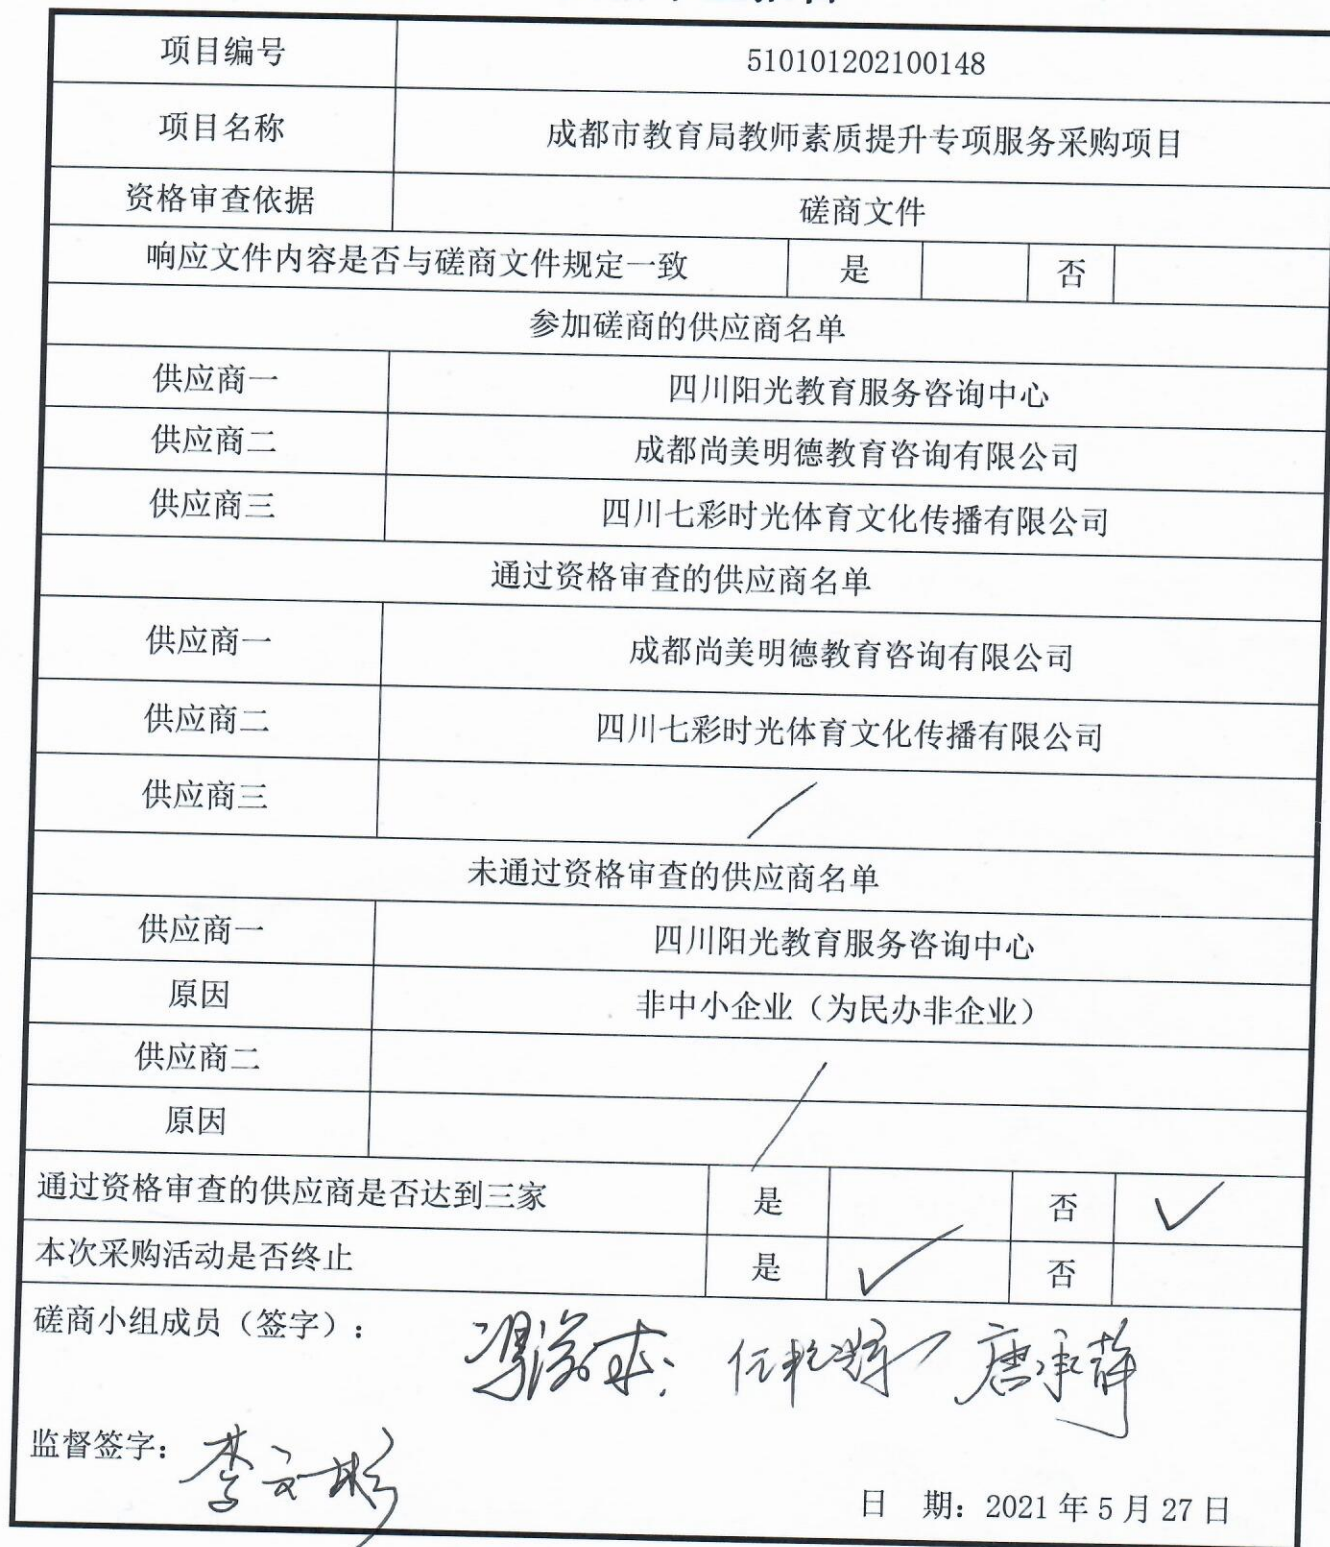 项目编号 510101202100148
项目名称 成都市教育局教师素质提升专项服务采购项目
资格审查依据 磋商文件
响应文件内容是否与磋商文件规定一致 是 否
参加磋商的供应商名单
供应商一 四川阳光教育服务咨询中心
供应商二 成都尚美明德教育咨询有限公司
供应商三 四川七彩时光体育文化传播有限公司
通过资格审查的供应商名单
供应商一 成都尚美明德教育咨询有限公司
供应商二 四川七彩时光体育文化传播有限公司
供应商三 /
未通过资格审查的供应商名单
供应商一 四川阳光教育服务咨询中心
原因 非中小企业（为民办非企业）
供应商二 /
原因
通过资格审查的供应商是否达到三家 是 否 ✓
本次采购活动是否终止 是 ✓ 否
磋商小组成员（签字）： 唐承静
监督签字：李文彬
日 期：2021年5月27日